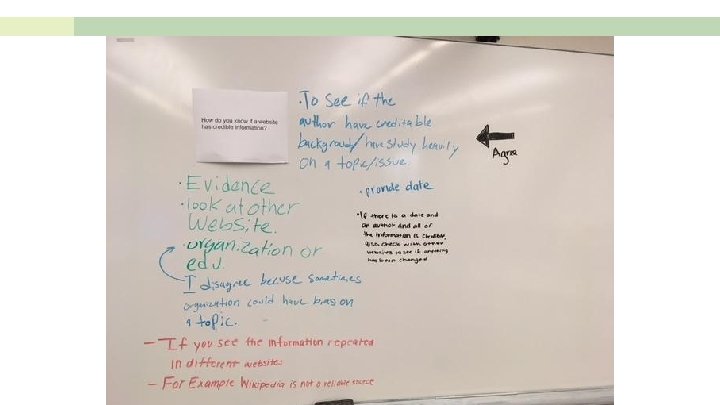 How do you know if a website
has credible information?
·To see if the
author have creditable
background/have study heavily
on a topic/issue.
Agree
·Evidence
·look at other
Website.
·organization or
edu.
I disagree becuse sometimes
organization could have bias on
a topic.
·provide date
·If there is a date and
an author and all of
the information is credible,
also check with other
websites to see if anything
has been changed
- If you see the information repeated
in different websites
- For Example Wikipedia is not a reliable source